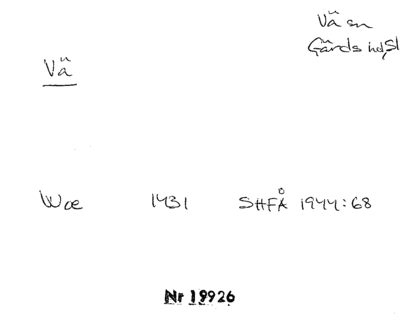 Vä sn
Gärds hd, Sk
Vä
Wæ 1431 SHFÅ 1944:68
Nr 19926